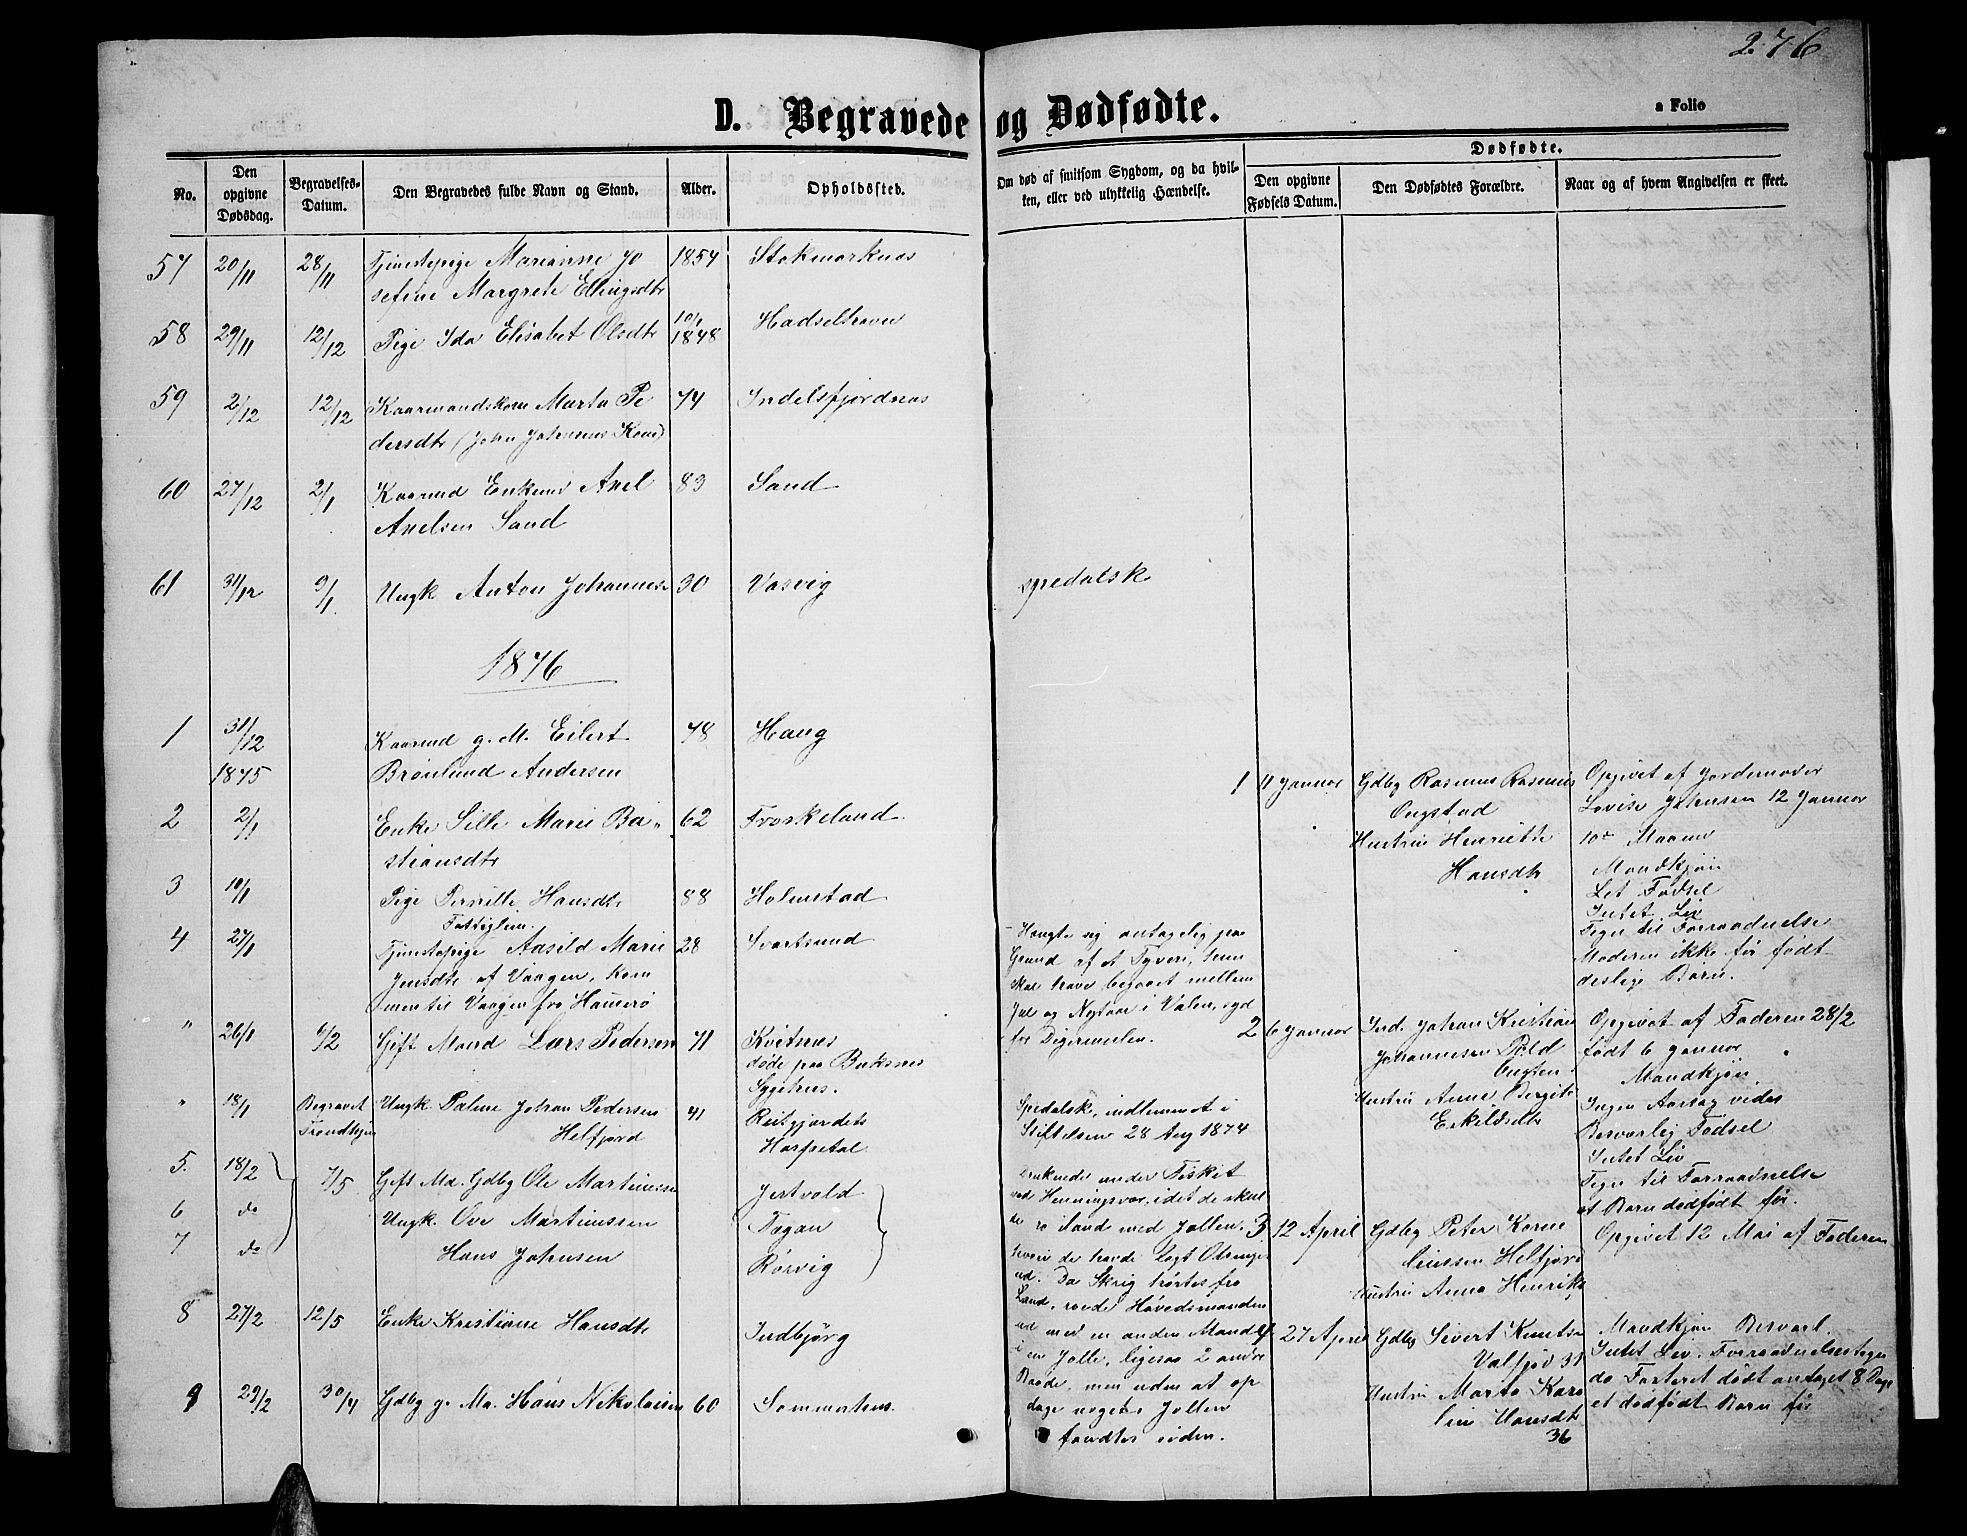 276
D. Begravede og Dødfødte.
a Folio
No.
Den opgivne Dødsdag.
Begravelses-Datum.
Den Begravedes fulde Navn og Stand.
Alder.
Opholdssted.
Om død af smitsom Sygdom, og da hvil-
ken, eller ved ulykkelig Hændelse.
Dødfødte.
Den opgivne Fødsels Datum.
Den Dødfødtes Forældre.
Naar og af hvem Angivelsen er skeet.
57 20/11 28/11 Tjenestepige Marianne Jo 1854 Stokmarknes
sefine Margrete Ellingsdtr
58 29/11 12/12 Pige Ida Elisabet Olsdtr 10/1 1848 Hadselhavn
59 2/12 12/12 Kaarmandskone Marta Pe 74 Indelsfjordnes
dersdtr (John Johnsens Kone)
60 27/12 2/1 Kaarmd Enkem Axel 83 Sand
Axelsen Sand
61 31/12 9/1 Ungk Anton Johannes 30 Vasvig spedalsk
1876
1 31/12 Kaarmd g. M. Eilert 78 Haug
1875 Brønlund Andersen
2 2/1 Enke Sille Marie Ba 62 Froskeland
stiansdtr
3 10/1 Pige Pernille Hansdtr 88 Holmstad
Fattiglem
4 27/1 Tjenestepige Aasild Marie 28 Svartsund
Jensdtr af Vaagen, kom
men til Vaagen fra Hammerø
Hengte sig antagelig paa
Grund af et Tyveri, hun
skal have begaaet mellem
Jul og Nytaar i Valen, syd
for Digermulen.
" 26/1 6/2 Gift Mand Lars Pedersen 71 Kvitnes
døde paa Buksnes
Sygehus.
" 18/1 Begravet Trondhjem Ungk Palme Johan Pedersen 41 Reitgjerdets
Helfjord Hospital
Spedalsk, indlemmet i
Stiftelsen 28 Aug 1874
5. 18/2 7/5 Gift Md. Gdbg Ole Martinussen Jertvold
6 do Ungk. Ove Martinussen Fagan
7 do Hans Johnsen Rørvig
druknede under Fisket
ved Henningsvær, idet de skul
de ro iland med Jollen,
hvori de havde lagt
ud. Da Skrig hørtes fra
Land, roede Høvedsmanden
ud med en anden Mand
i en Jolle, ligesaa 2 andre
Baade, men uden at op
dage nogen. Jollen
fandtes siden.
8 27/2 12/5 Enke Kristiane Hansdtr Indbjörg
9 29/2 30/4 Gdbg g. Ma. Hans Nikolaisen 60 Sommerhus
1 11 Januar Gdbg Rasmus Rasmus
Ongstad
Hustru Henrikke
Hansdtr
Opgivet af Jordemoder
Lovise Johnsen 12 Januar
10de Maaned
Mandkjøn
Let Fødsel
Intet Liv
Tegn til Forraadnelse
Moderen ikke før født
deslige Børn.
2 6 Januar Ind. Johan Kristian
Johannesen Pold
Hustru Anne Bergite
Eskildsdtr
Opgivet af Faderen 28/2
født 6 Januar
Mandkjøn
Ingen Aarsag vides
Besværlig Fødsel
Intet Liv
Tegn til Forraadnelse
et Barn dødfødt før.
3 12 April Gdbg Peter Korne
liussen Helfjord
Hustru Anna Henriks
Opgivet 12 Mai af Faderen
4 27 April Gdbg Sivert Knuts
Valfjord 31
Hustru Marta Karo
line Hansdtr
36
Mandkjøn Besværl.
Intet Liv. Forraadnelsestegn
do Fosteret dødt antaget 8 Dage
et dødfødt Barn før